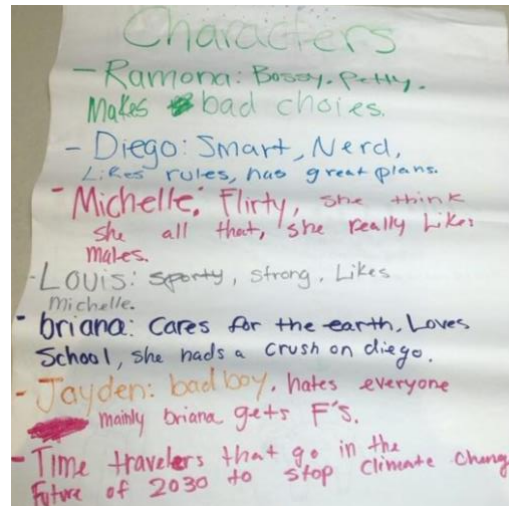 Characters
- Ramona: Bossy. Petty.
Makes bad choies.
- Diego: Smart, Nerd,
Likes rules, has great plans.
- Michelle: Flirty, she think
she all that, she really Likes
males.
- Louis: sporty, strong, Likes
Michelle.
- briana: Cares for the earth, Loves
School, she hads a crush on diego.
- Jayden: bad boy, hates everyone
mainly briana gets F's.
- Time travelers that go in the
Future of 2030 to stop climate chang